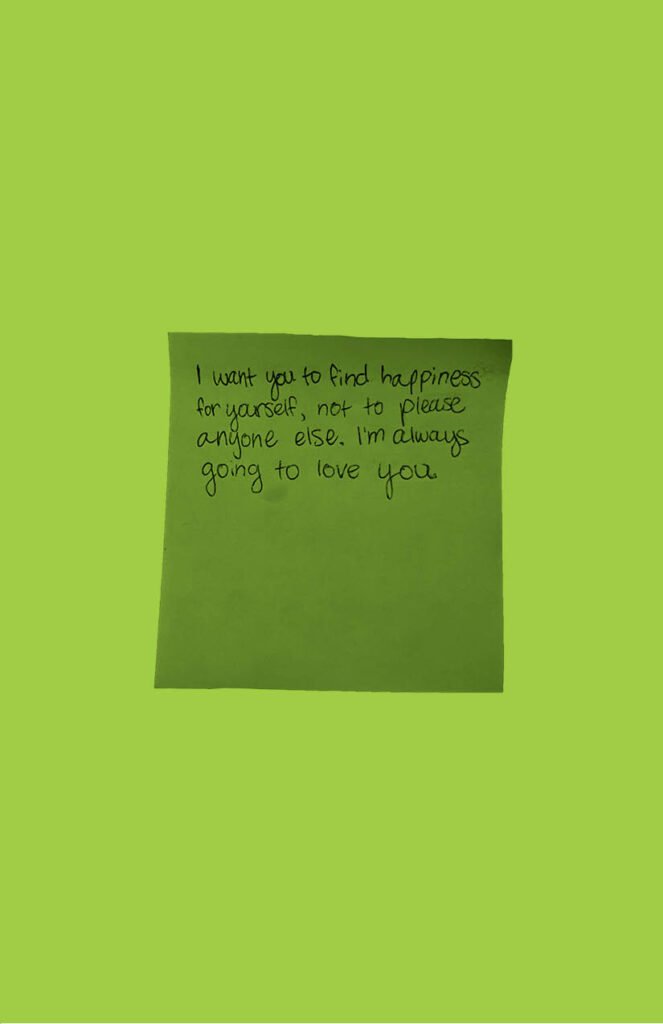 I want you to find happiness
for yourself, not to please
anyone else. I'm always
going to love you.